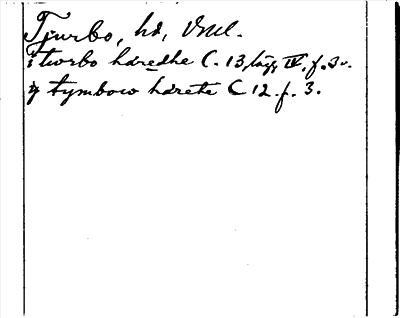 Tjurbo, hd, Vml.
i tiworbo häredhe C. 13, läg IV, f. 3 v.
ÿ tymbow härete C 12 f. 3.